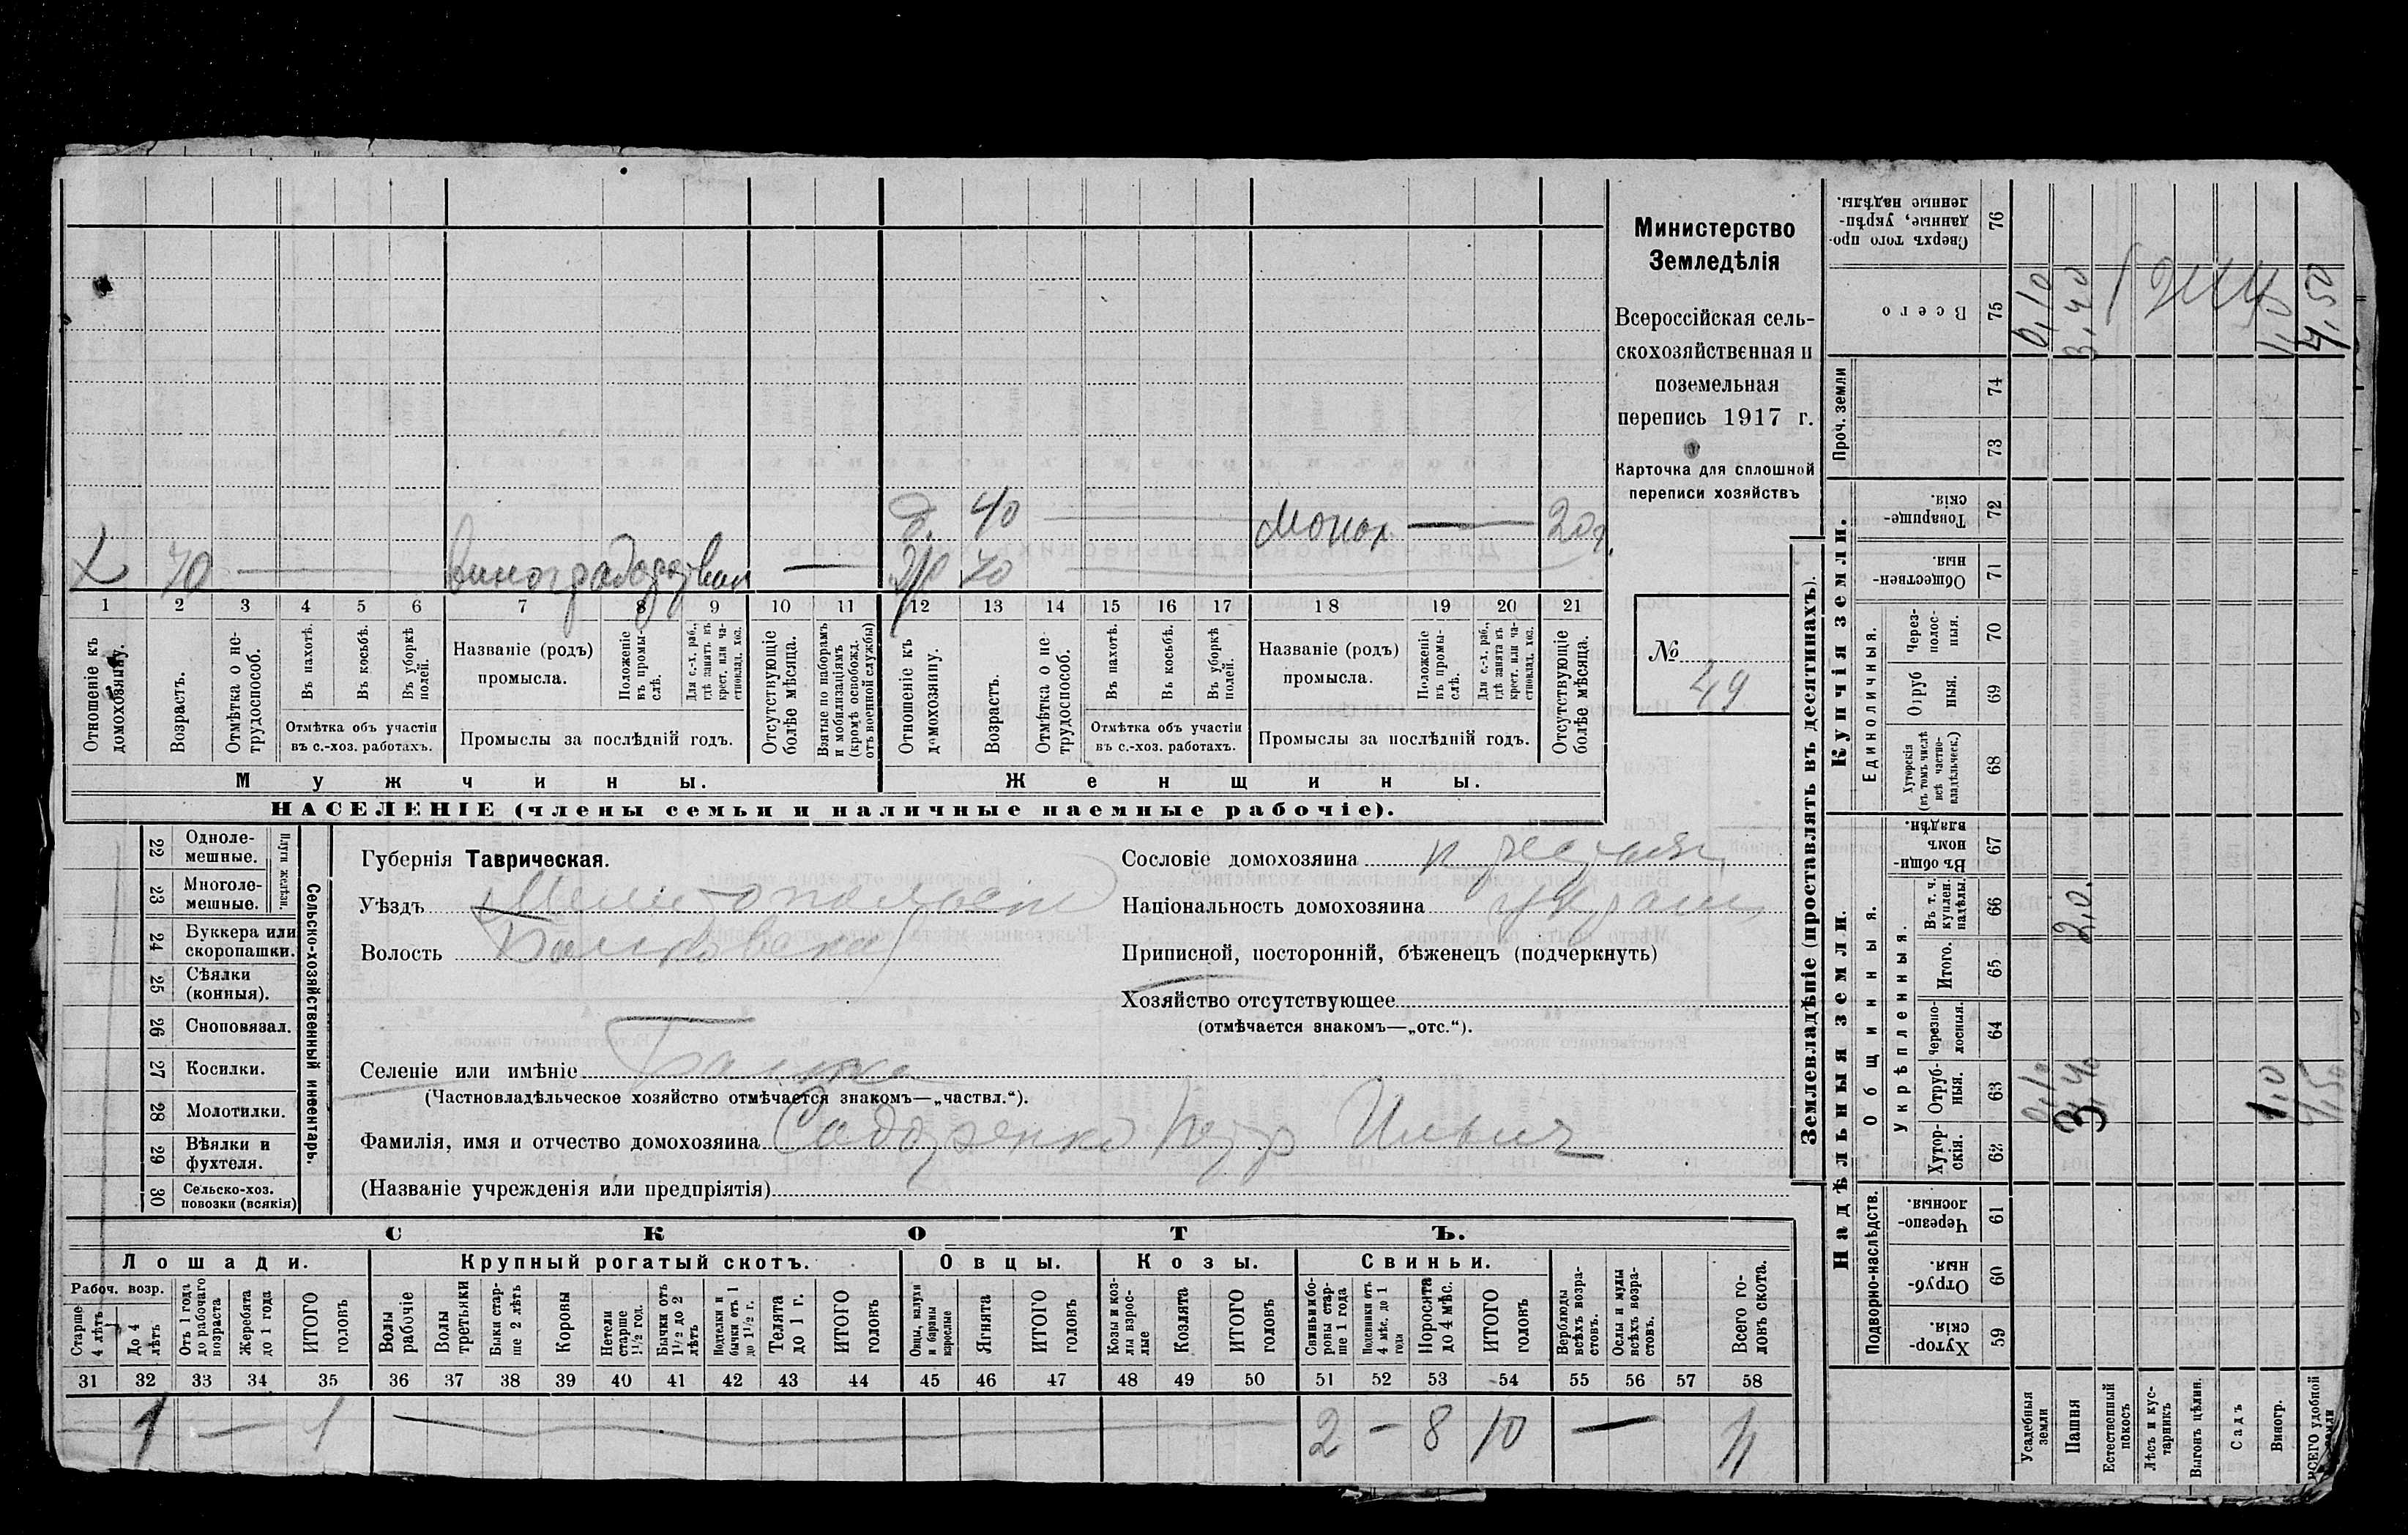 Министерство
Земледѣлія
Всероссійская сель-
скохозяйственная и
поземельная
перепись 1917 г.
Карточка для сплошной
переписи хозяйствъ
№ 49
д. 40 20
Х 70 70
1 2 3 4 5 6 7 8 9 10 11 12 13 14 15 16 17 18 19 20 21
Отношеніе къ домохозяину.
Возрастъ.
Отмѣтка о не-трудоспособ.
Въ пахотѣ.
Въ косьбѣ.
Въ уборкѣ полей.
Отмѣтка объ участіи въ с.-хоз. работахъ.
Названіе (родъ) промысла.
Положеніе въ промы-слѣ.
Для с.-х. раб., гдѣ занятъ въ крест. или ча-стновлад. хоз.
Промыслы за послѣдній годъ.
Отсутствующіе болѣе мѣсяца.
Взятые по наборамъ и мобилизаціямъ (кромѣ освобожд. отъ военной службы)
Отношеніе къ домохозяину.
Возрастъ.
Отмѣтка о не-трудоспособ.
Въ пахотѣ.
Въ косьбѣ.
Въ уборкѣ полей.
Отмѣтка объ участіи въ с.-хоз. работахъ.
Названіе (родъ) промысла.
Положеніе въ промы-слѣ.
Для с.-х. раб., гдѣ занята въ крест. или ча-стновлад. хоз.
Промыслы за послѣдній годъ.
Отсутствующіе болѣе мѣсяца.
Мужчины.
Женщины.
НАСЕЛЕНІЕ (члены семьи и наличные наемные рабочіе).
22 Одноле-мешные.
23 Многоле-мешные.
Плуги желѣзн.
24 Буккера или скоропашки.
25 Сѣялки (конныя).
26 Сноповязал.
27 Косилки.
28 Молотилки.
29 Вѣялки и фухтеля.
30 Сельско-хоз. повозки (всякія)
Сельско-хозяйственный инвентарь.
Губернія Таврическая.
Уѣздъ Мелитопольск
Волость Балковская
Сословіе домохозяина
Національность домохозяина украин
Приписной, посторонній, бѣженецъ (подчеркнуть)
Хозяйство отсутствующее
(отмѣчается знакомъ—„отс.“).
Селеніе или имѣніе Балки
(Частновладѣльческое хозяйство отмѣчается знакомъ—„частвл.“).
Фамилія, имя и отчество домохозяина Сидоренко Петр Ильич
(Названіе учрежденія или предпріятія)
СКОТЪ.
Лошади.
Крупный рогатый скотъ.
Овцы.
Козы.
Свиньи.
Рабоч. возр.
Старше 4 лѣтъ
До 4 лѣтъ
Отъ 1 года до рабочаго возраста
Жеребята до 1 года
ИТОГО головъ
Волы рабочіе
Волы третьяки
Быки стар-ше 2 лѣтъ
Коровы
Нетели старше 1½ год.
Бычки отъ 1½ до 2 лѣтъ
Подтелки и бычки отъ 1 до 1½ г.
Телята до 1 г.
ИТОГО головъ
Овцы, валухи и бараны взрослые
Ягнята
ИТОГО головъ
Козы и коз-лы взрос-лые
Козлята
ИТОГО головъ
Свиньи и бо-ровы стар-ше 1 года
Подсвинки отъ 4 мѣс. до 1 года
Поросята до 4 мѣс.
ИТОГО головъ
Верблюды всѣхъ возра-стовъ.
Ослы и мулы всѣхъ возра-стовъ.
Всего го-ловъ скота.
31 32 33 34 35 36 37 38 39 40 41 42 43 44 45 46 47 48 49 50 51 52 53 54 55 56 57 58
1 — 1 — 2 — 8 10 — 11
Землевладѣніе (проставлять въ десятинахъ).
Надѣльныя земли.
Купчія земли.
Проч. земли
Всего
Сверхъ того про-данные, укрѣп-ленные надѣлы.
Подворно-наслѣдств.
Общинныя.
Укрѣпленныя.
Единоличныя.
Хутор-скія. 59
Отруб-ныя. 60
Черезпо-лосныя. 61
Хутор-скія. 62
Отруб-ныя. 63
Черезпо-лосныя. 64
Итого. 65
Въ т. ч. куплен. надѣлы. 66
Въ общи-номъ владѣн. 67
Хуторскія (въ томъ числѣ всѣ частно-владѣльческ.) 68
Отруб ныя. 69
Через-полос-ныя. 70
Обществен-ныя 71
Товарище-скія. 72
73 74 75 76
Усадебныя земли 0,10 0,10
Пашня 3,40 2,0. 3,40
Естественный покосъ
Лѣсъ и кус-тарникъ
Выгонъ цѣлин.
Садъ
Виногр. 1,0 1,0
ВСЕГО удобной земли 4,50 4,50